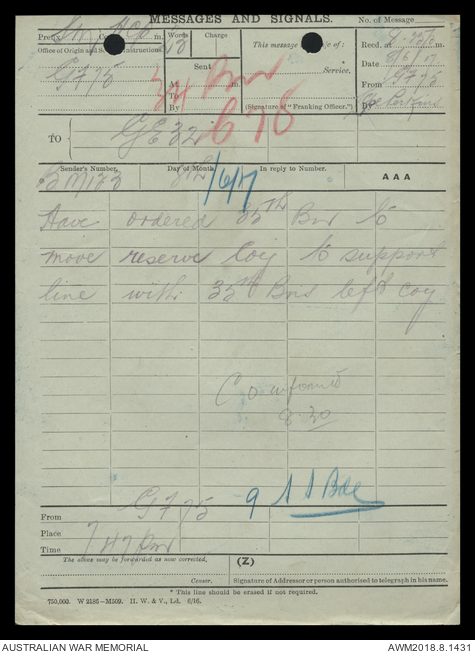 MESSAGES AND SIGNALS.
No. of Message
Prefix Sm Code m.
Words
Charge
This message is on a/c of:
Recd. at m.
Office of Origin and Service Instructions.
18
Service.
Date 8/6/17
GF 75
Sent
From GF 75
At m.
To
By
(Signature of "Franking Officer.")
By Perkins
34 Bn
678
TO
GE 32
Sender's Number.
Day of Month
In reply to Number.
AAA
BM/133
8th
/6/17
Have ordered 35th Bn to
move reserve Coy to support
line with 33rd Bns left coy
C.O. informed
8.30
From GF 75
9 A I Bde
Place
Time 7.47 pm
The above may be forwarded as now corrected.
(Z)
Censor.
Signature of Addressor or person authorised to telegraph in his name.
* This line should be erased if not required.
750,000. W 2186—M509. H. W. & V., Ld. 6/16.
AUSTRALIAN WAR MEMORIAL
AWM2018.8.1431